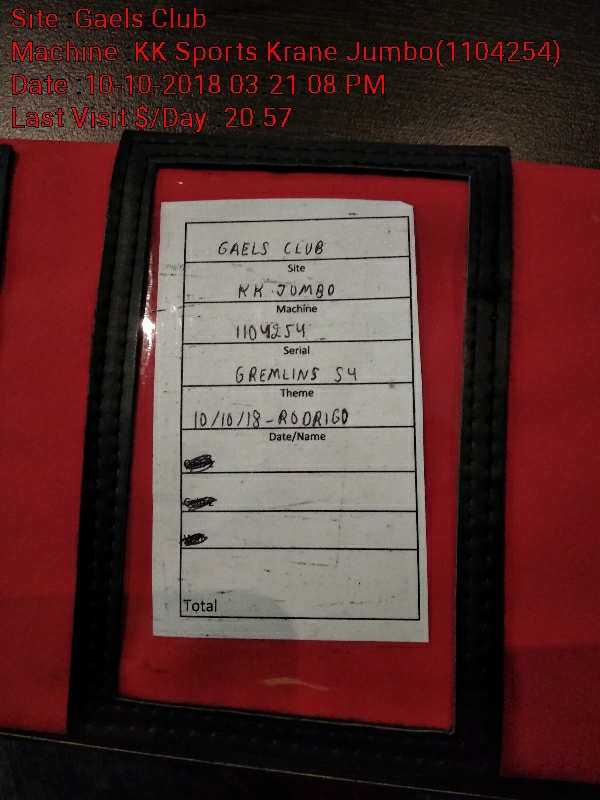 Site :Gaels Club
Machine :KK Sports Krane Jumbo(1104254)
Date :10-10-2018 03:21:08 PM
Last Visit $/Day :20.57
GAELS CLUB
Site
KK JUMBO
Machine
1104254
Serial
GREMLINS S4
Theme
10/10/18-RODRIGO
Date/Name
Total